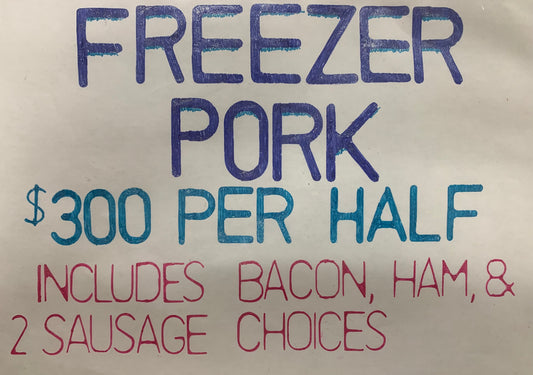 FREEZER
PORK
$300 PER HALF
INCLUDES BACON, HAM, &
2 SAUSAGE CHOICES